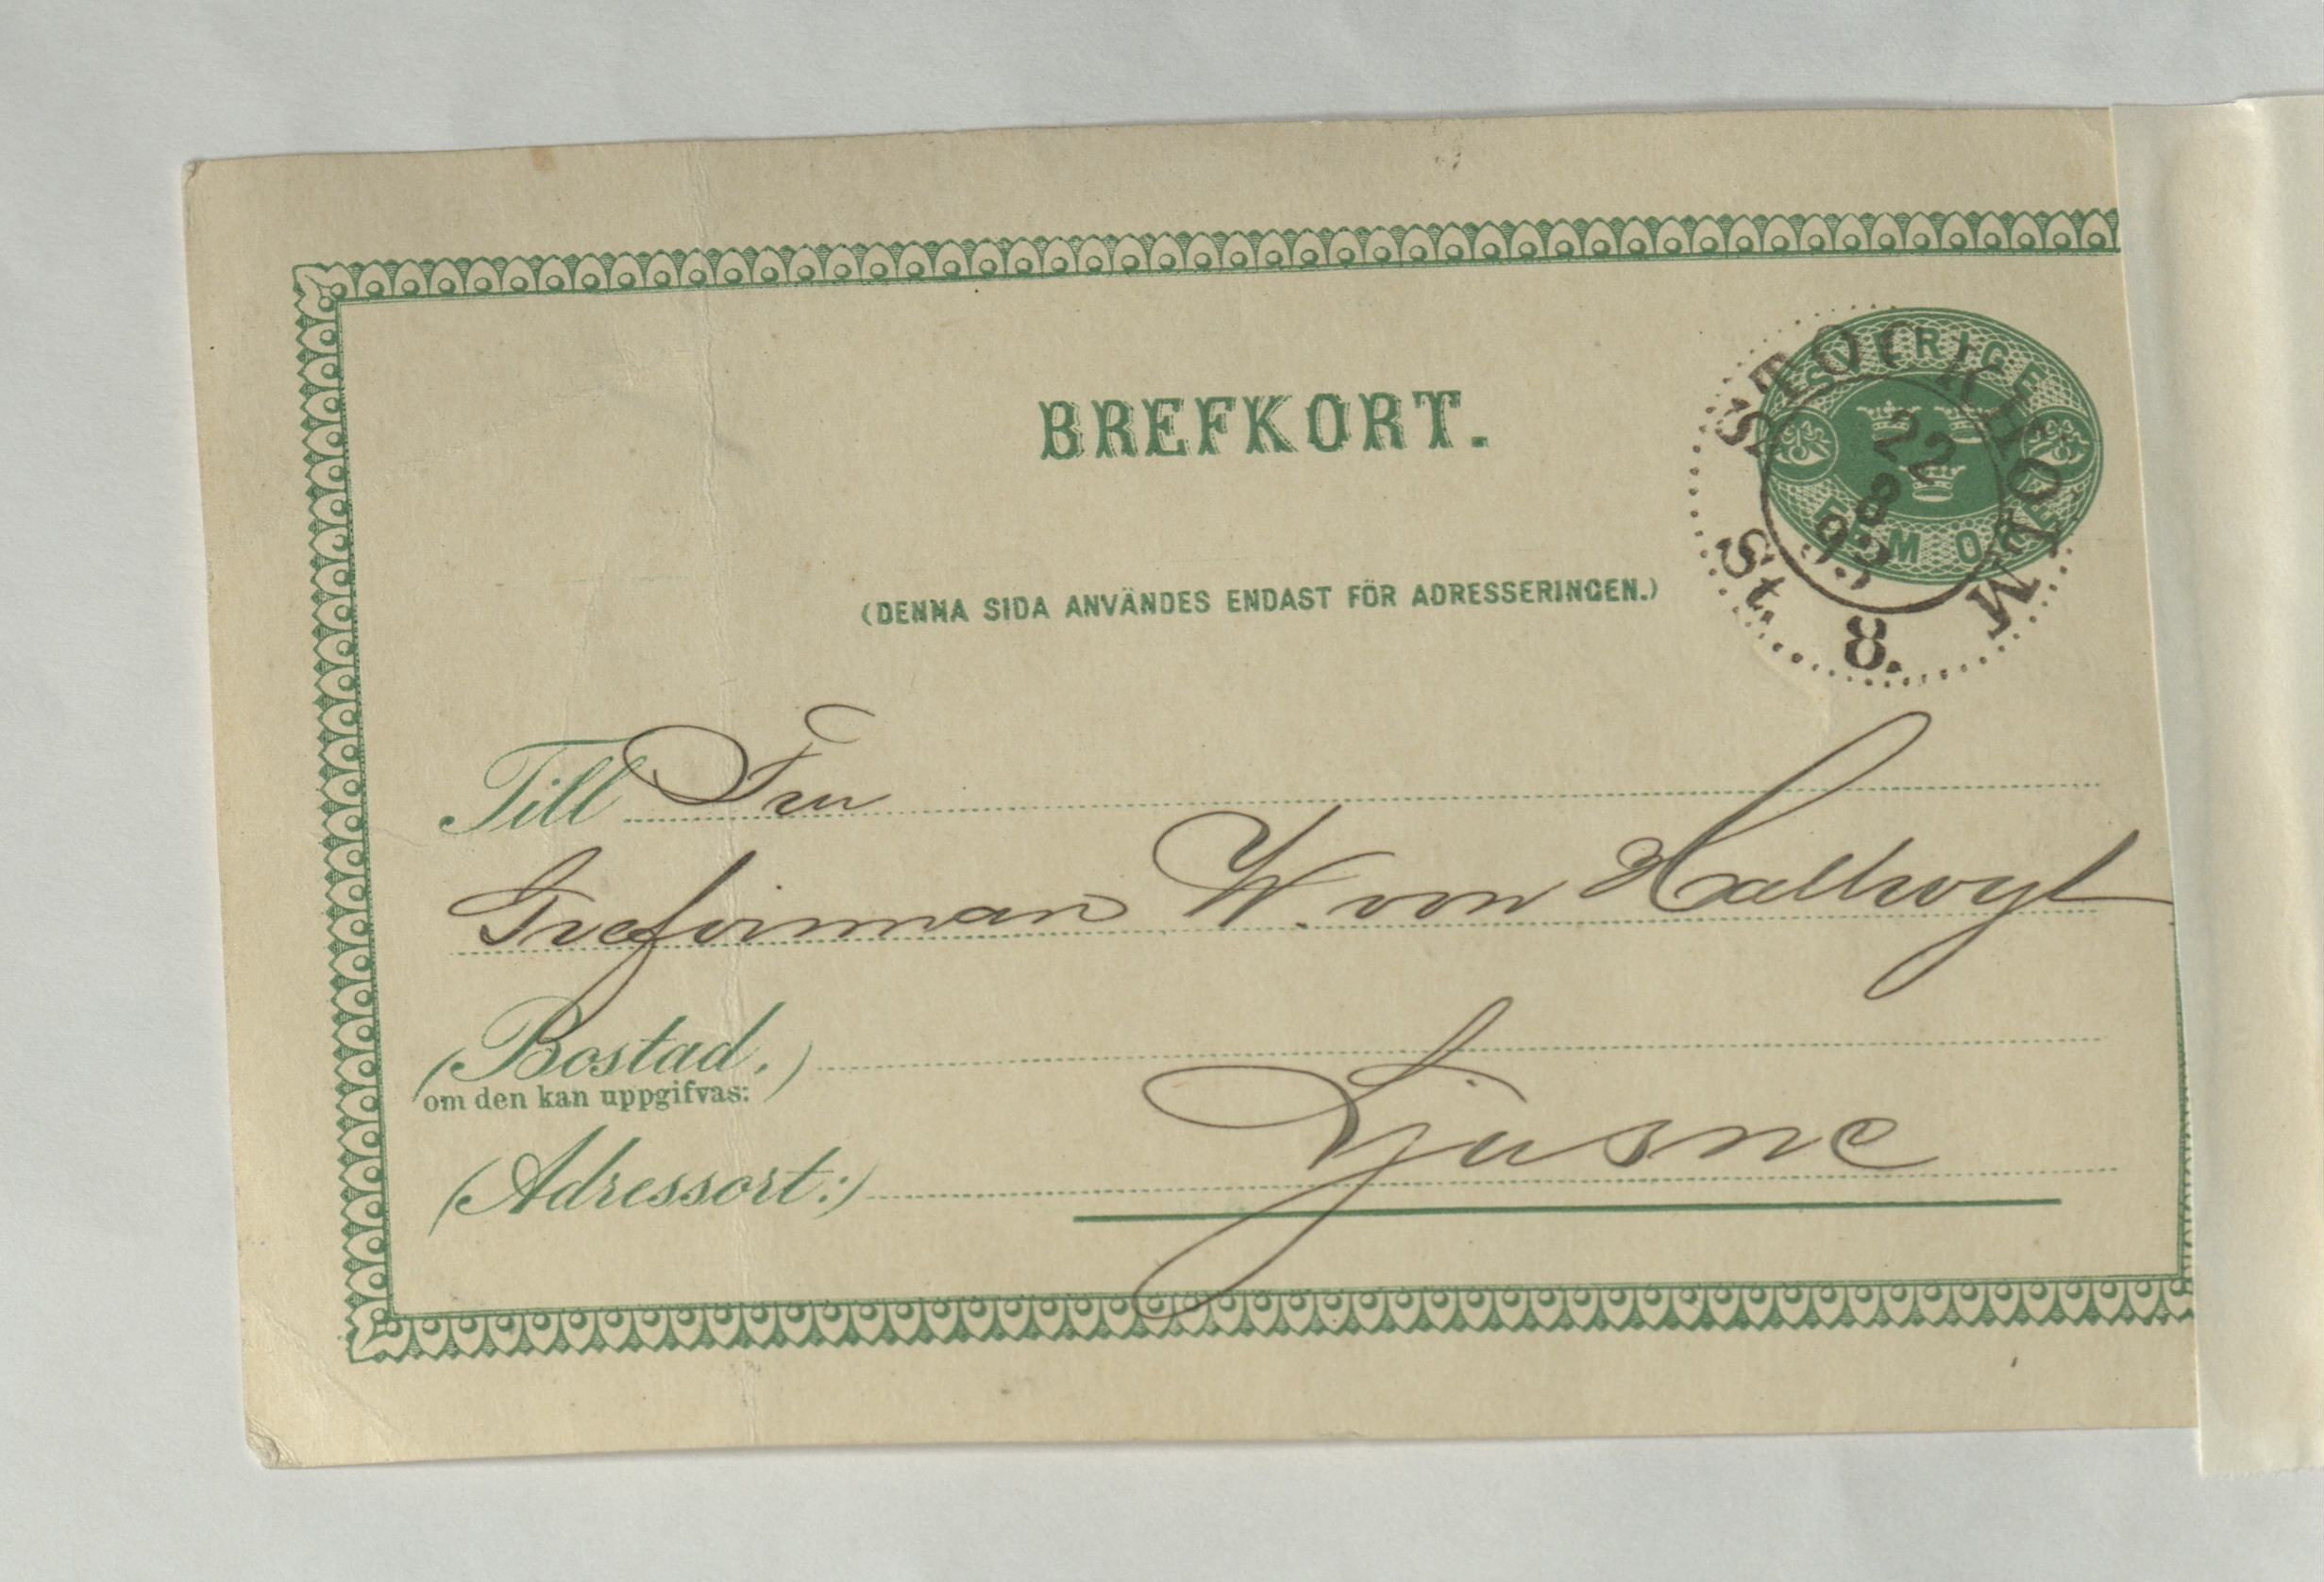 SVERIGE
FEM ÖRE
STOCKHOLM
22
8
93
St. 8.
BREFKORT.
(DENNA SIDA ANVÄNDES ENDAST FÖR ADRESSERINGEN.)
Till Fru
Grefvinnan W. von Hallwyl
(Bostad.)
om den kan uppgifvas:
(Adressort:) Ljusne